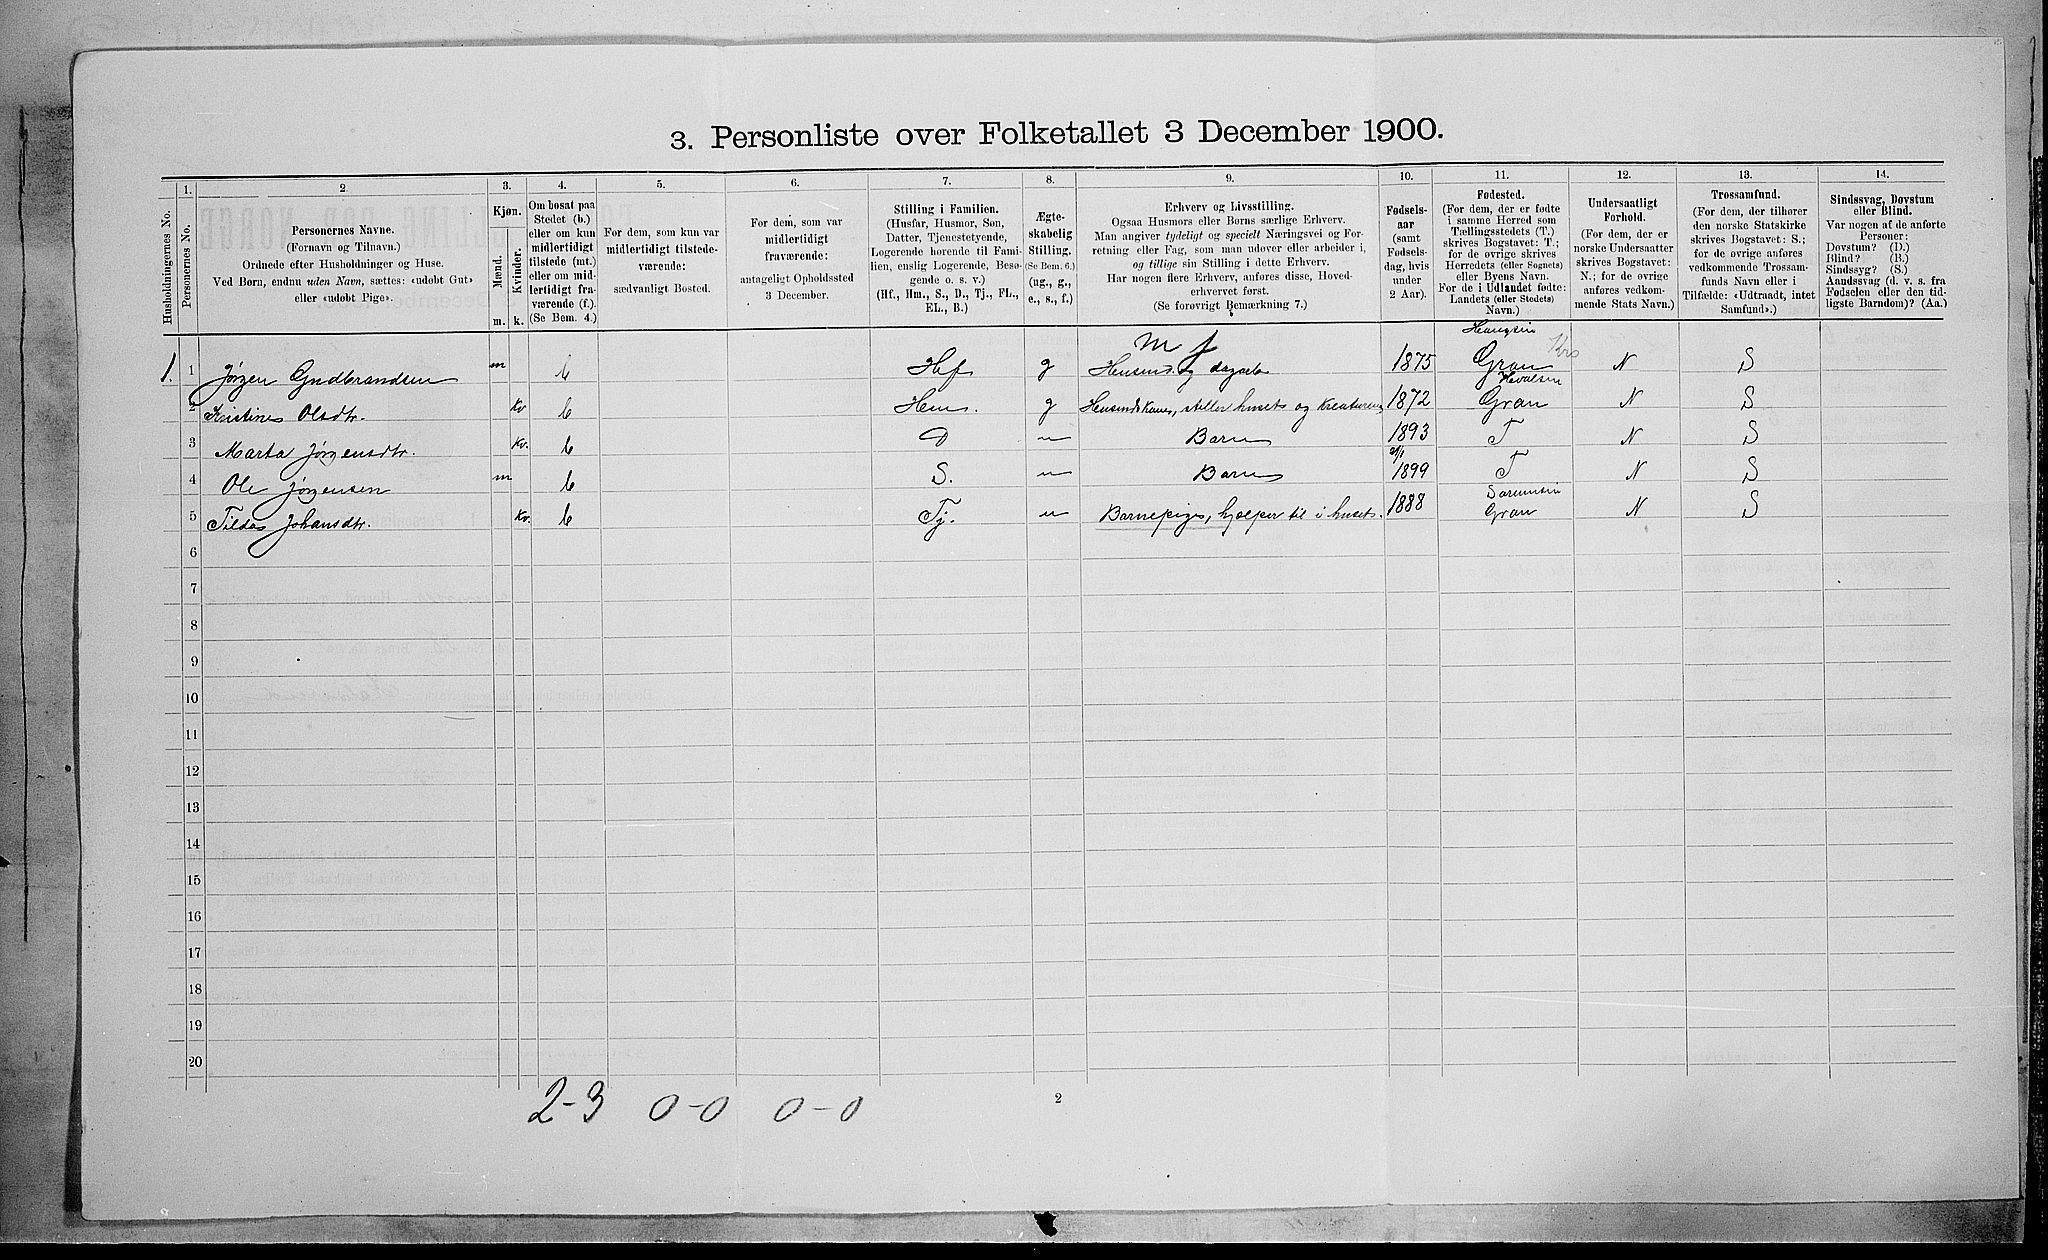 3. Personliste over Folketallet 3 December 1900.
Husholdningernes No.
1.
Personernes No.
2.
Personernes Navne.
(Fornavn og Tilnavn.)
Ordnede efter Husholdninger og Huse.
Ved Børn, endnu uden Navn, sættes: «udøbt Gut»
eller «udøbt Pige».
3.
Kjøn.
Mænd.
Kvinder.
m.
k.
4.
Om bosat paa
Stedet (b.)
eller om kun
midlertidigt
tilstede (mt.)
eller om mid-
lertidigt fra-
værende (f.).
(Se Bem. 4.)
5.
For dem, som kun var
midlertidigt tilstede-
værende:
sædvanligt Bosted.
6.
For dem, som var
midlertidigt
fraværende:
antageligt Opholdssted
3 December.
7.
Stilling i Familien.
(Husfar, Husmor, Søn,
Datter, Tjenestetyende,
Logerende hørende til Fami-
lien, enslig Logerende, Besø-
gende o. s. v.)
(Hf., Hm., S., D., Tj., FL.,
EL., B.)
8.
Ægte-
skabelig
Stilling.
(Se Bem. 6.)
(ug., g.,
e., s., f.)
9.
Erhverv og Livsstilling.
Ogsaa Husmors eller Børns særlige Erhverv.
Man angiver tydeligt og specielt Næringsvei og For-
retning eller Fag, som man udøver eller arbeider i,
og tillige sin Stilling i dette Erhverv.
Har nogen flere Erhverv, anføres disse, Hoved-
erhvervet først.
(Se forøvrigt Bemærkning 7.)
10.
Fødsels-
aar
(samt
Fødsels-
dag, hvis
under
2 Aar).
11.
Fødested.
(For dem, der er fødte
i samme Herred som
Tællingsstedets (T.)
skrives Bogstavet: T.;
for de øvrige skrives
Herredets (eller Sognets)
eller Byens Navn.
For de i Udlandet fødte:
Landets (eller Stedets)
Navn.)
12.
Undersaatligt
Forhold.
(For dem, der er
norske Undersaatter
skrives Bogstavet:
N.; for de øvrige
anføres vedkom-
mende Stats Navn.)
13.
Trossamfund.
(For dem, der tilhører
den norske Statskirke
skrives Bogstavet: S.;
for de øvrige anføres
vedkommende Trossam-
funds Navn eller i
Tilfælde: «Udtraadt, intet
Samfund».)
14.
Sindssvag, Døvstum
eller Blind.
Var nogen af de anførte
Personer:
Døvstum? (D.)
Blind? (B.)
Sindssyg? (S.)
Aandssvag (d. v. s. fra
Fødselen eller den tid-
ligste Barndom)? (Aa.)
m f
1. 1 Jørgen Gudbrandsen m b Hf g 1875 Gran N S
2 Kristine Olsdtr. kv b Hm. g stiller huset og Kreaturene 1872 Gran N S
3 Marta Jørgensdtr. kv. b D Barn 1893 T N S
4 Ole Jørgensen m b S. Barn 1899 T N S
5 Tilda Johansdtr. kv. b Tj. Barnepige, hjælper til i huset. 1888 Gran N S
6
7
8
9
10
11
12
13
14
15
16
17
18
19
20
2-3 0-0 0-0
2